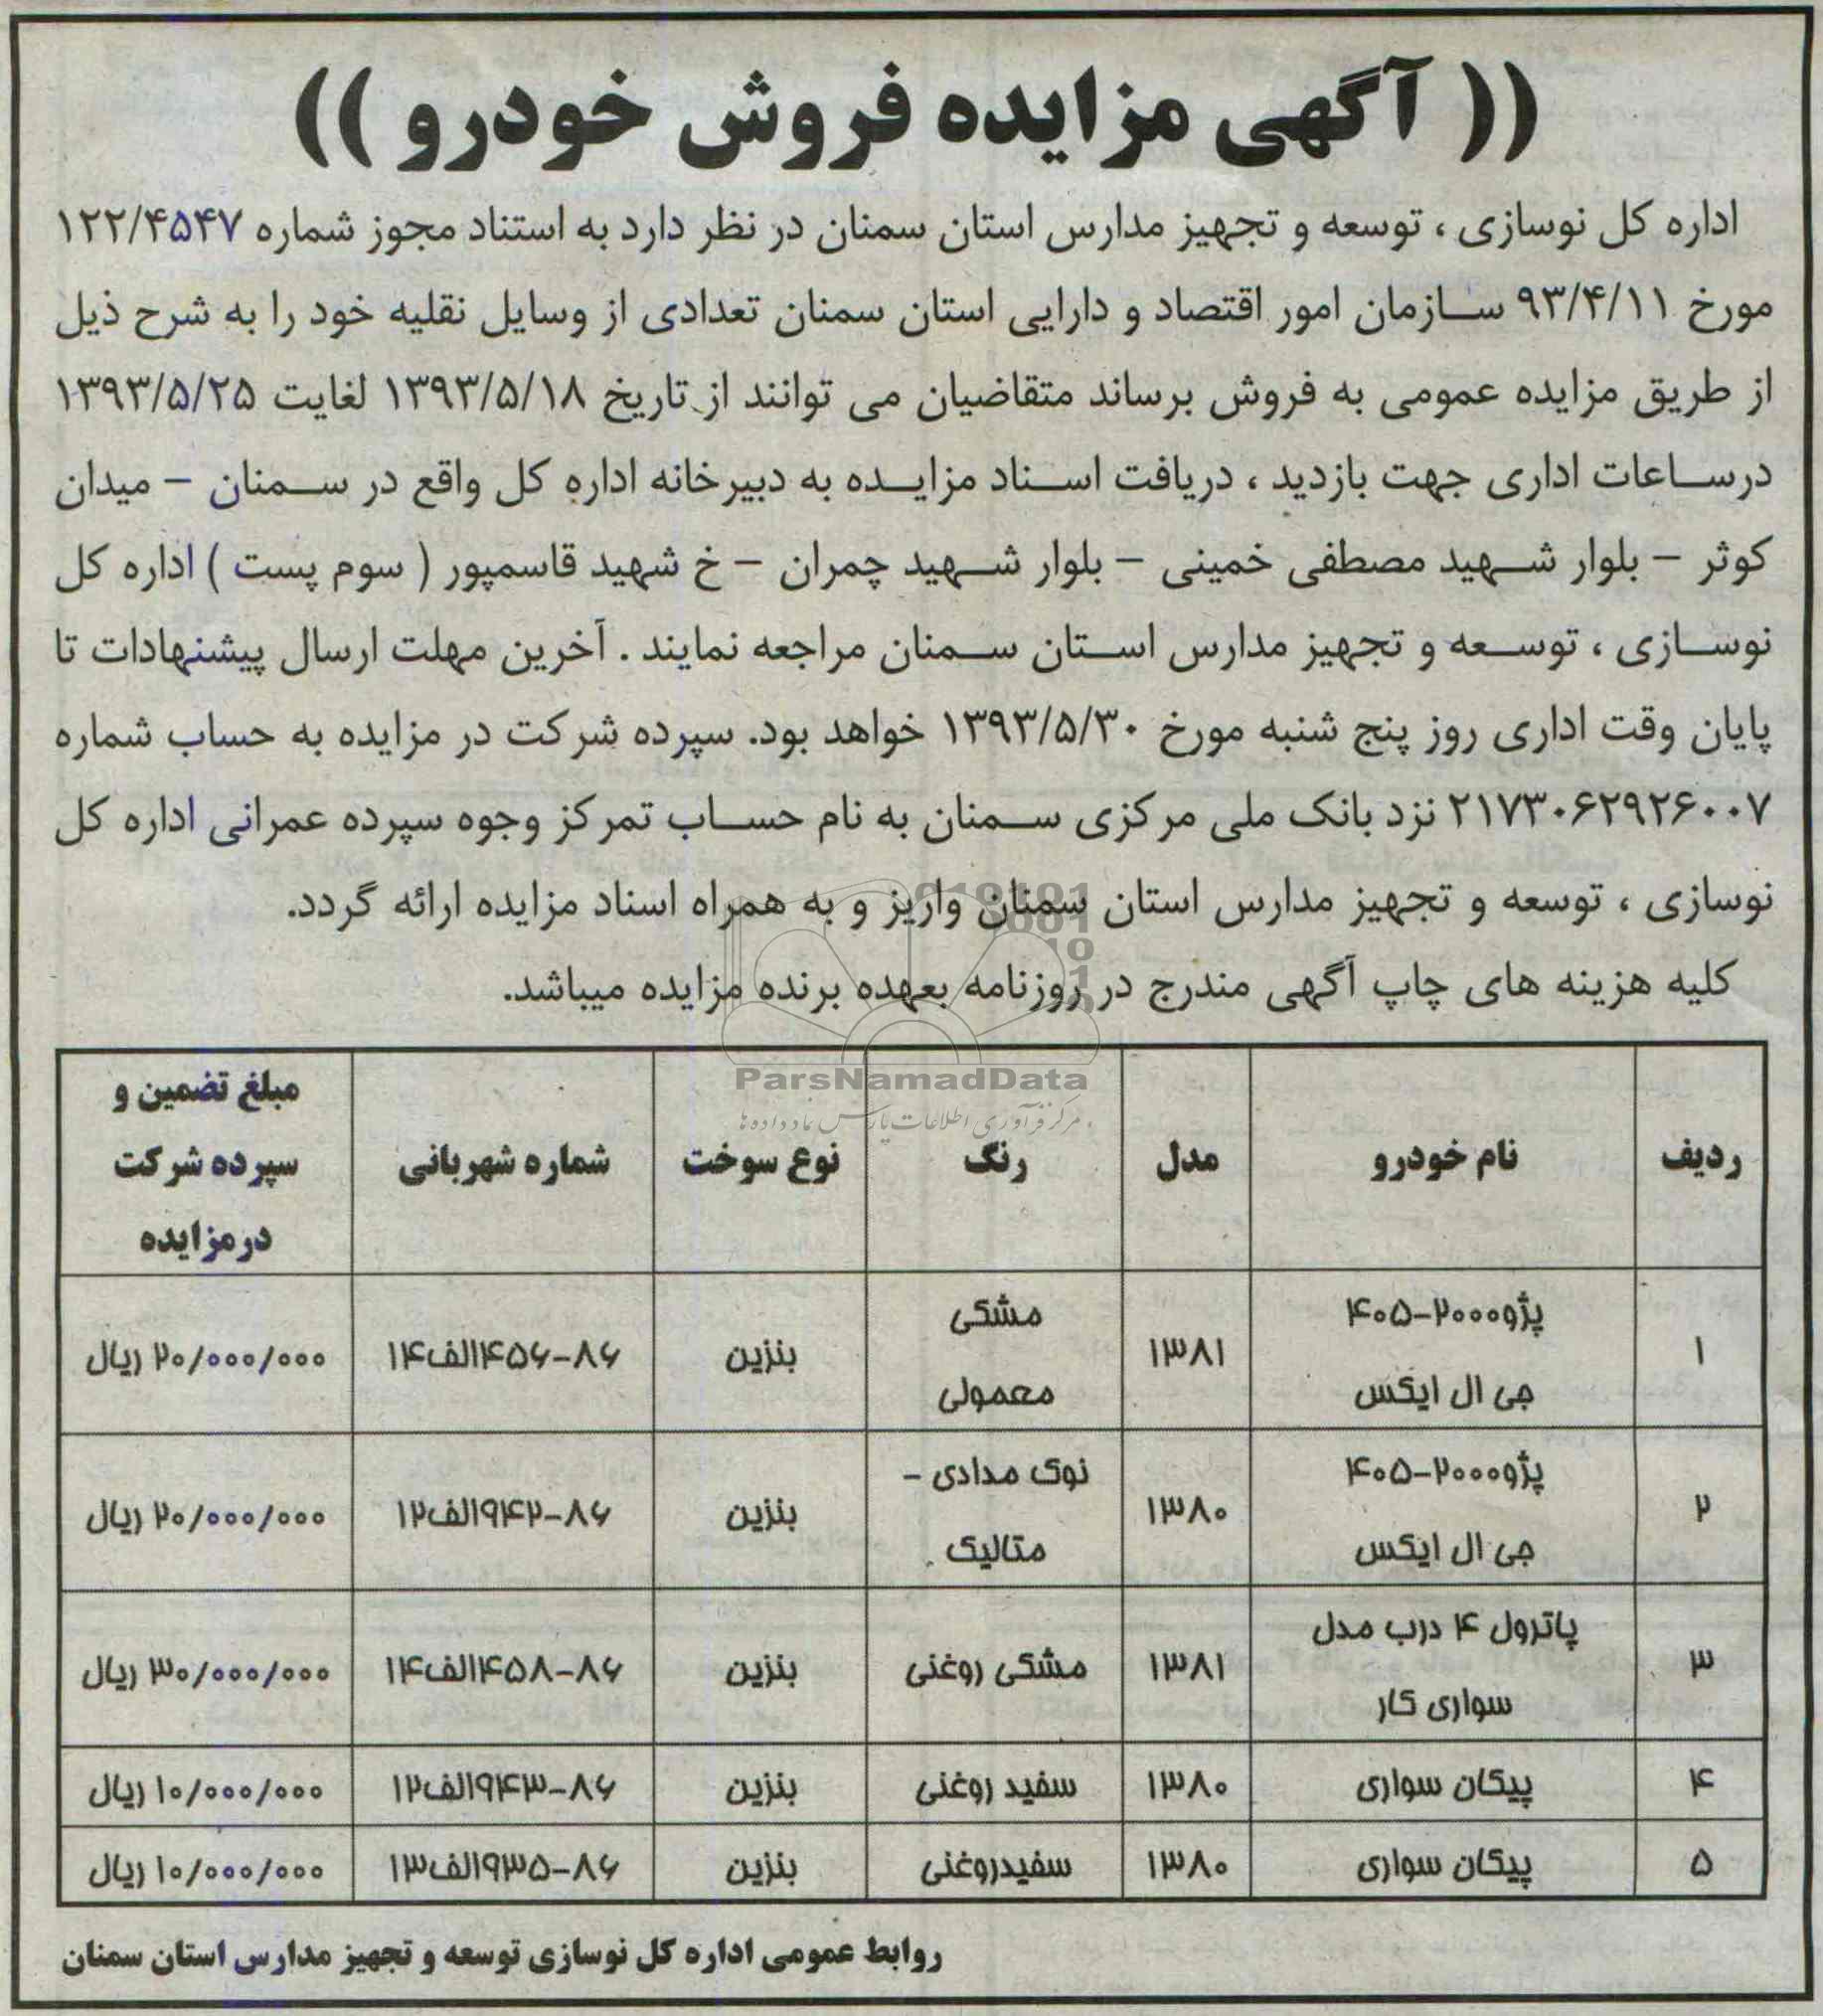 (( آگهی مزایده فروش خودرو ))
اداره کل نوسازی ، توسعه و تجهیز مدارس استان سمنان در نظر دارد به استناد مجوز شماره ۱۲۲/۴۵۴۷
مورخ ۹۳/۴/۱۱ سازمان امور اقتصاد و دارایی استان سمنان تعدادی از وسایل نقلیه خود را به شرح ذیل
از طریق مزایده عمومی به فروش برساند متقاضیان می توانند از تاریخ ۱۳۹۳/۵/۱۸ لغایت ۱۳۹۳/۵/۲۵
درساعات اداری جهت بازدید ، دریافت اسناد مزایده به دبیرخانه اداره کل واقع در سمنان – میدان
کوثر – بلوار شهید مصطفی خمینی – بلوار شهید چمران – خ شهید قاسمپور ( سوم پست ) اداره کل
نوسازی ، توسعه و تجهیز مدارس استان سمنان مراجعه نمایند . آخرین مهلت ارسال پیشنهادات تا
پایان وقت اداری روز پنج شنبه مورخ ۱۳۹۳/۵/۳۰ خواهد بود. سپرده شرکت در مزایده به حساب شماره
۲۱۷۳۰۶۲۹۲۶۰۰۷ نزد بانک ملی مرکزی سمنان به نام حساب تمرکز وجوه سپرده عمرانی اداره کل
نوسازی ، توسعه و تجهیز مدارس استان سمنان واریز و به همراه اسناد مزایده ارائه گردد.
کلیه هزینه های چاپ آگهی مندرج در روزنامه بعهده برنده مزایده میباشد.
ParsNamadData
مرکز فرآوری اطلاعات پارس نماد داده ها
ردیف نام خودرو مدل رنگ نوع سوخت شماره شهربانی مبلغ تضمین و سپرده شرکت درمزایده
۱ پژو۲۰۰۰-۴۰۵ جی ال ایکس ۱۳۸۱ مشکی معمولی بنزین ۸۶-۴۵۶الف۱۴ ۲۰/۰۰۰/۰۰۰ ریال
۲ پژو۲۰۰۰-۴۰۵ جی ال ایکس ۱۳۸۰ نوک مدادی - متالیک بنزین ۸۶-۹۴۲الف۱۲ ۲۰/۰۰۰/۰۰۰ ریال
۳ پاترول ۴ درب مدل سواری کار ۱۳۸۱ مشکی روغنی بنزین ۸۶-۴۵۸الف۱۴ ۳۰/۰۰۰/۰۰۰ ریال
۴ پیکان سواری ۱۳۸۰ سفید روغنی بنزین ۸۶-۹۴۳الف۱۲ ۱۰/۰۰۰/۰۰۰ ریال
۵ پیکان سواری ۱۳۸۰ سفیدروغنی بنزین ۸۶-۹۳۵الف۱۳ ۱۰/۰۰۰/۰۰۰ ریال
روابط عمومی اداره کل نوسازی توسعه و تجهیز مدارس استان سمنان